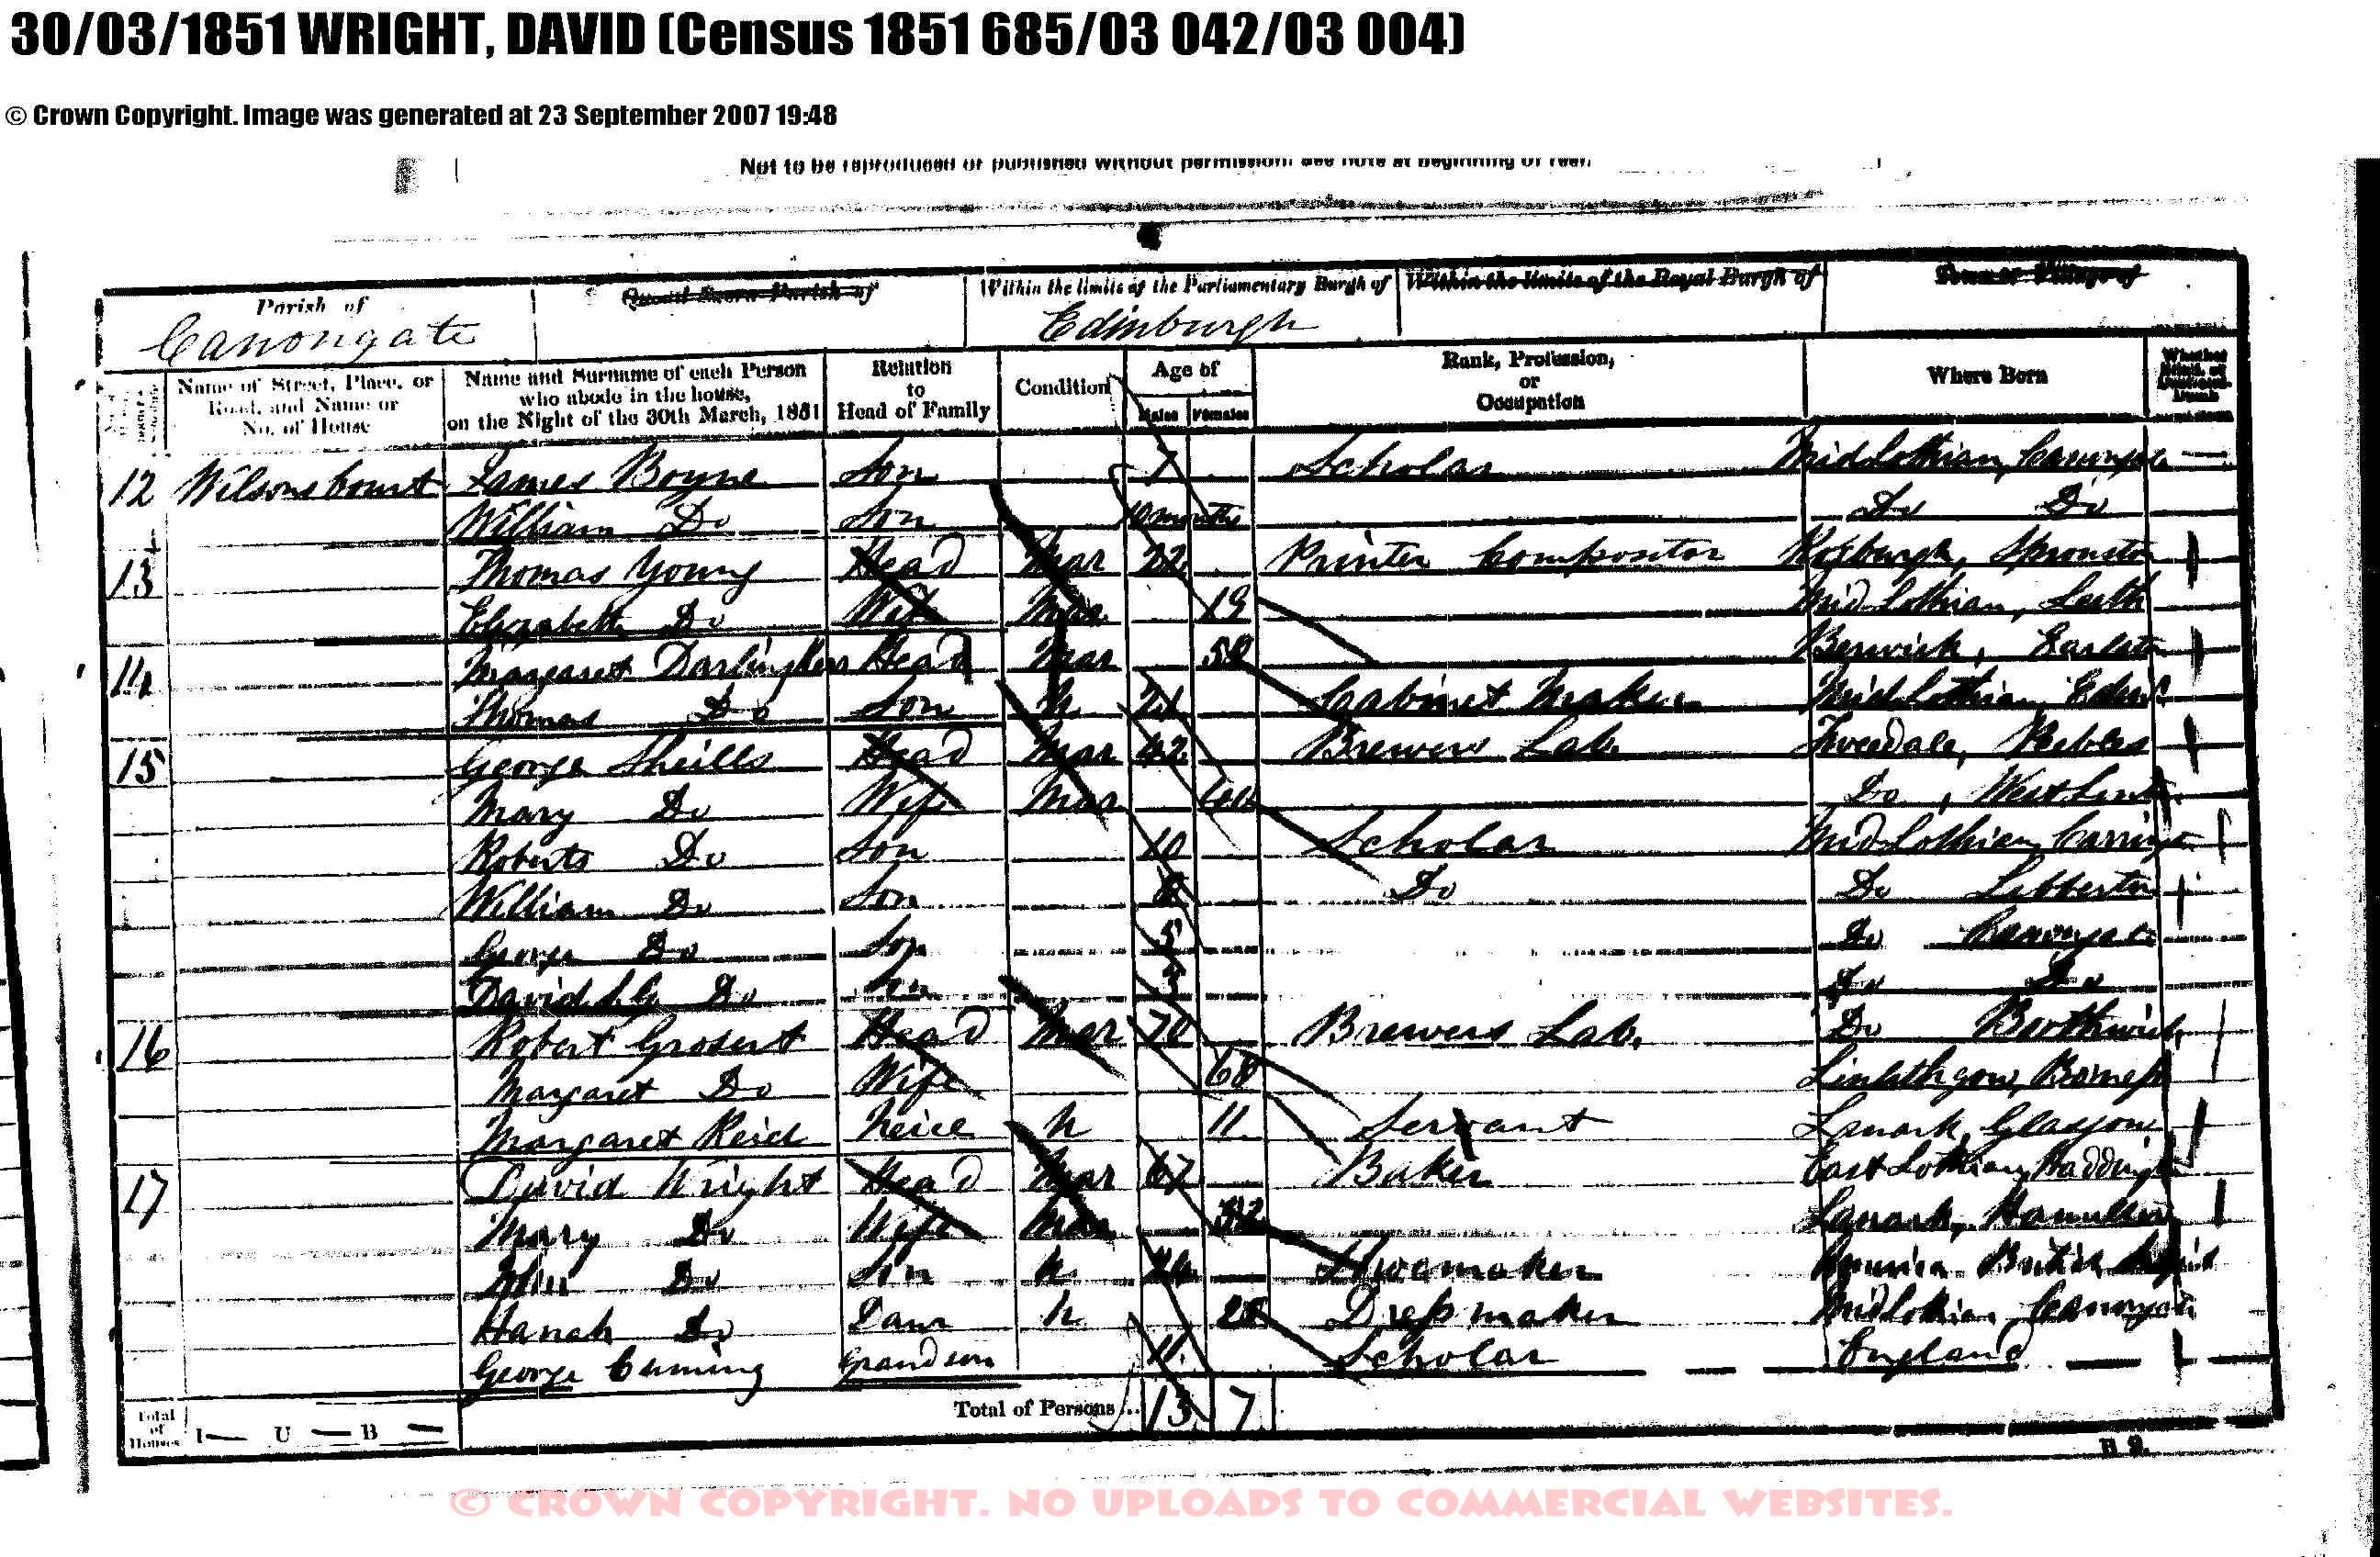 30/03/1851 WRIGHT, DAVID (Census 1851 685/03 042/03 004)
© Crown Copyright. Image was generated at 23 September 2007 19:48
Not to be reproduced or published without permission: see note at beginning of reel.
Parish of Quoad Sacra Parish of Within the limits of the Parliamentary Burgh of Within the limits of the Royal Burgh of Town or Village of
Canongate Edinburgh
Name of Street, Place, or Road, and Name or No. of House
Name and Surname of each Person who abode in the house, on the Night of the 30th March, 1851
Relation to Head of Family
Condition
Age of
Males Females
Rank, Profession, or Occupation
Where Born
Whether
12 Wilsons Court James Boyne Son 7 Scholar MidLothian, Canongate
William Do Son 10 months Do Do
13 Thomas Young Head Mar 22 Printer Compositor Roxburgh, Sprouston
Elizabeth Do Wife Mar 19 MidLothian, Leith
14 Margaret Head Mar Berwick,
Thomas Do Son U 21 Cabinet Maker MidLothian, Edinr
15 George Sheills Head Mar 42 Brewers Lab. Tweedale, Peebles
Mary Do Wife Mar Do, West Lint
Roberts Do Son 10 Scholar MidLothian,
William Do Son 8 Do Do Libberton
George Do Son 5 Do Canongate
David Do Son Do Do
16 Robert Grosert Head Mar 70 Brewers Lab. Do Borthwick
Margaret Do Wife 68 Linlithgow,
Margaret Reid Neice U 11 Servant Lanark, Glasgow
17 David Wright Head Mar 67 Baker East Lothian, Haddingt
Mary Do Wife Mar 52 Lanark, Hamilton
John Do Son U Shoemaker America British
Hanah Do Daur U Dress maker MidLothian, Canongate
George Cuming Grandson 11 Scholar England
Total of Houses I— U — B — Total of Persons... 13 7
© CROWN COPYRIGHT. NO UPLOADS TO COMMERCIAL WEBSITES.